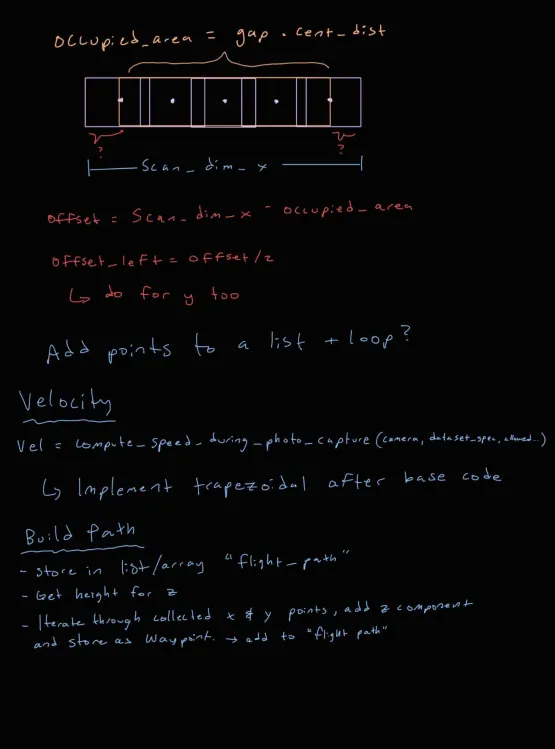 occupied_area = gap . cent_dist
?
?
Scan_dim_x
offset = Scan_dim_x - occupied_area
offset_left = offset/2
↳ do for y too
Add points to a list + loop?
Velocity
Vel = compute_speed_during_photo_capture (camera, dataset_spec, allowed...)
↳ Implement trapezoidal after base code
Build Path
- store in list/array "flight_path"
- Get height for z
- Iterate through collected x & y points, add z component
and store as Waypoint. → add to "flight path"